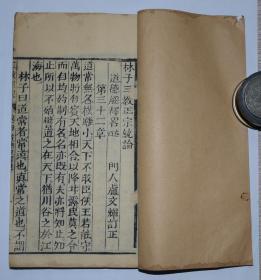 林子三教正宗統論
道德經釋畧
門人盧文輝訂正
第三十二章
道常無名樸雖小天下不敢臣侯王若能守
萬物將自賓天地相合以降甘露民莫之令
而自均始制有名名亦既有夫亦將知止知
止所以不殆譬道之在天下猶川谷之於江
海也
林子曰道常者常道也真常之道也不謂